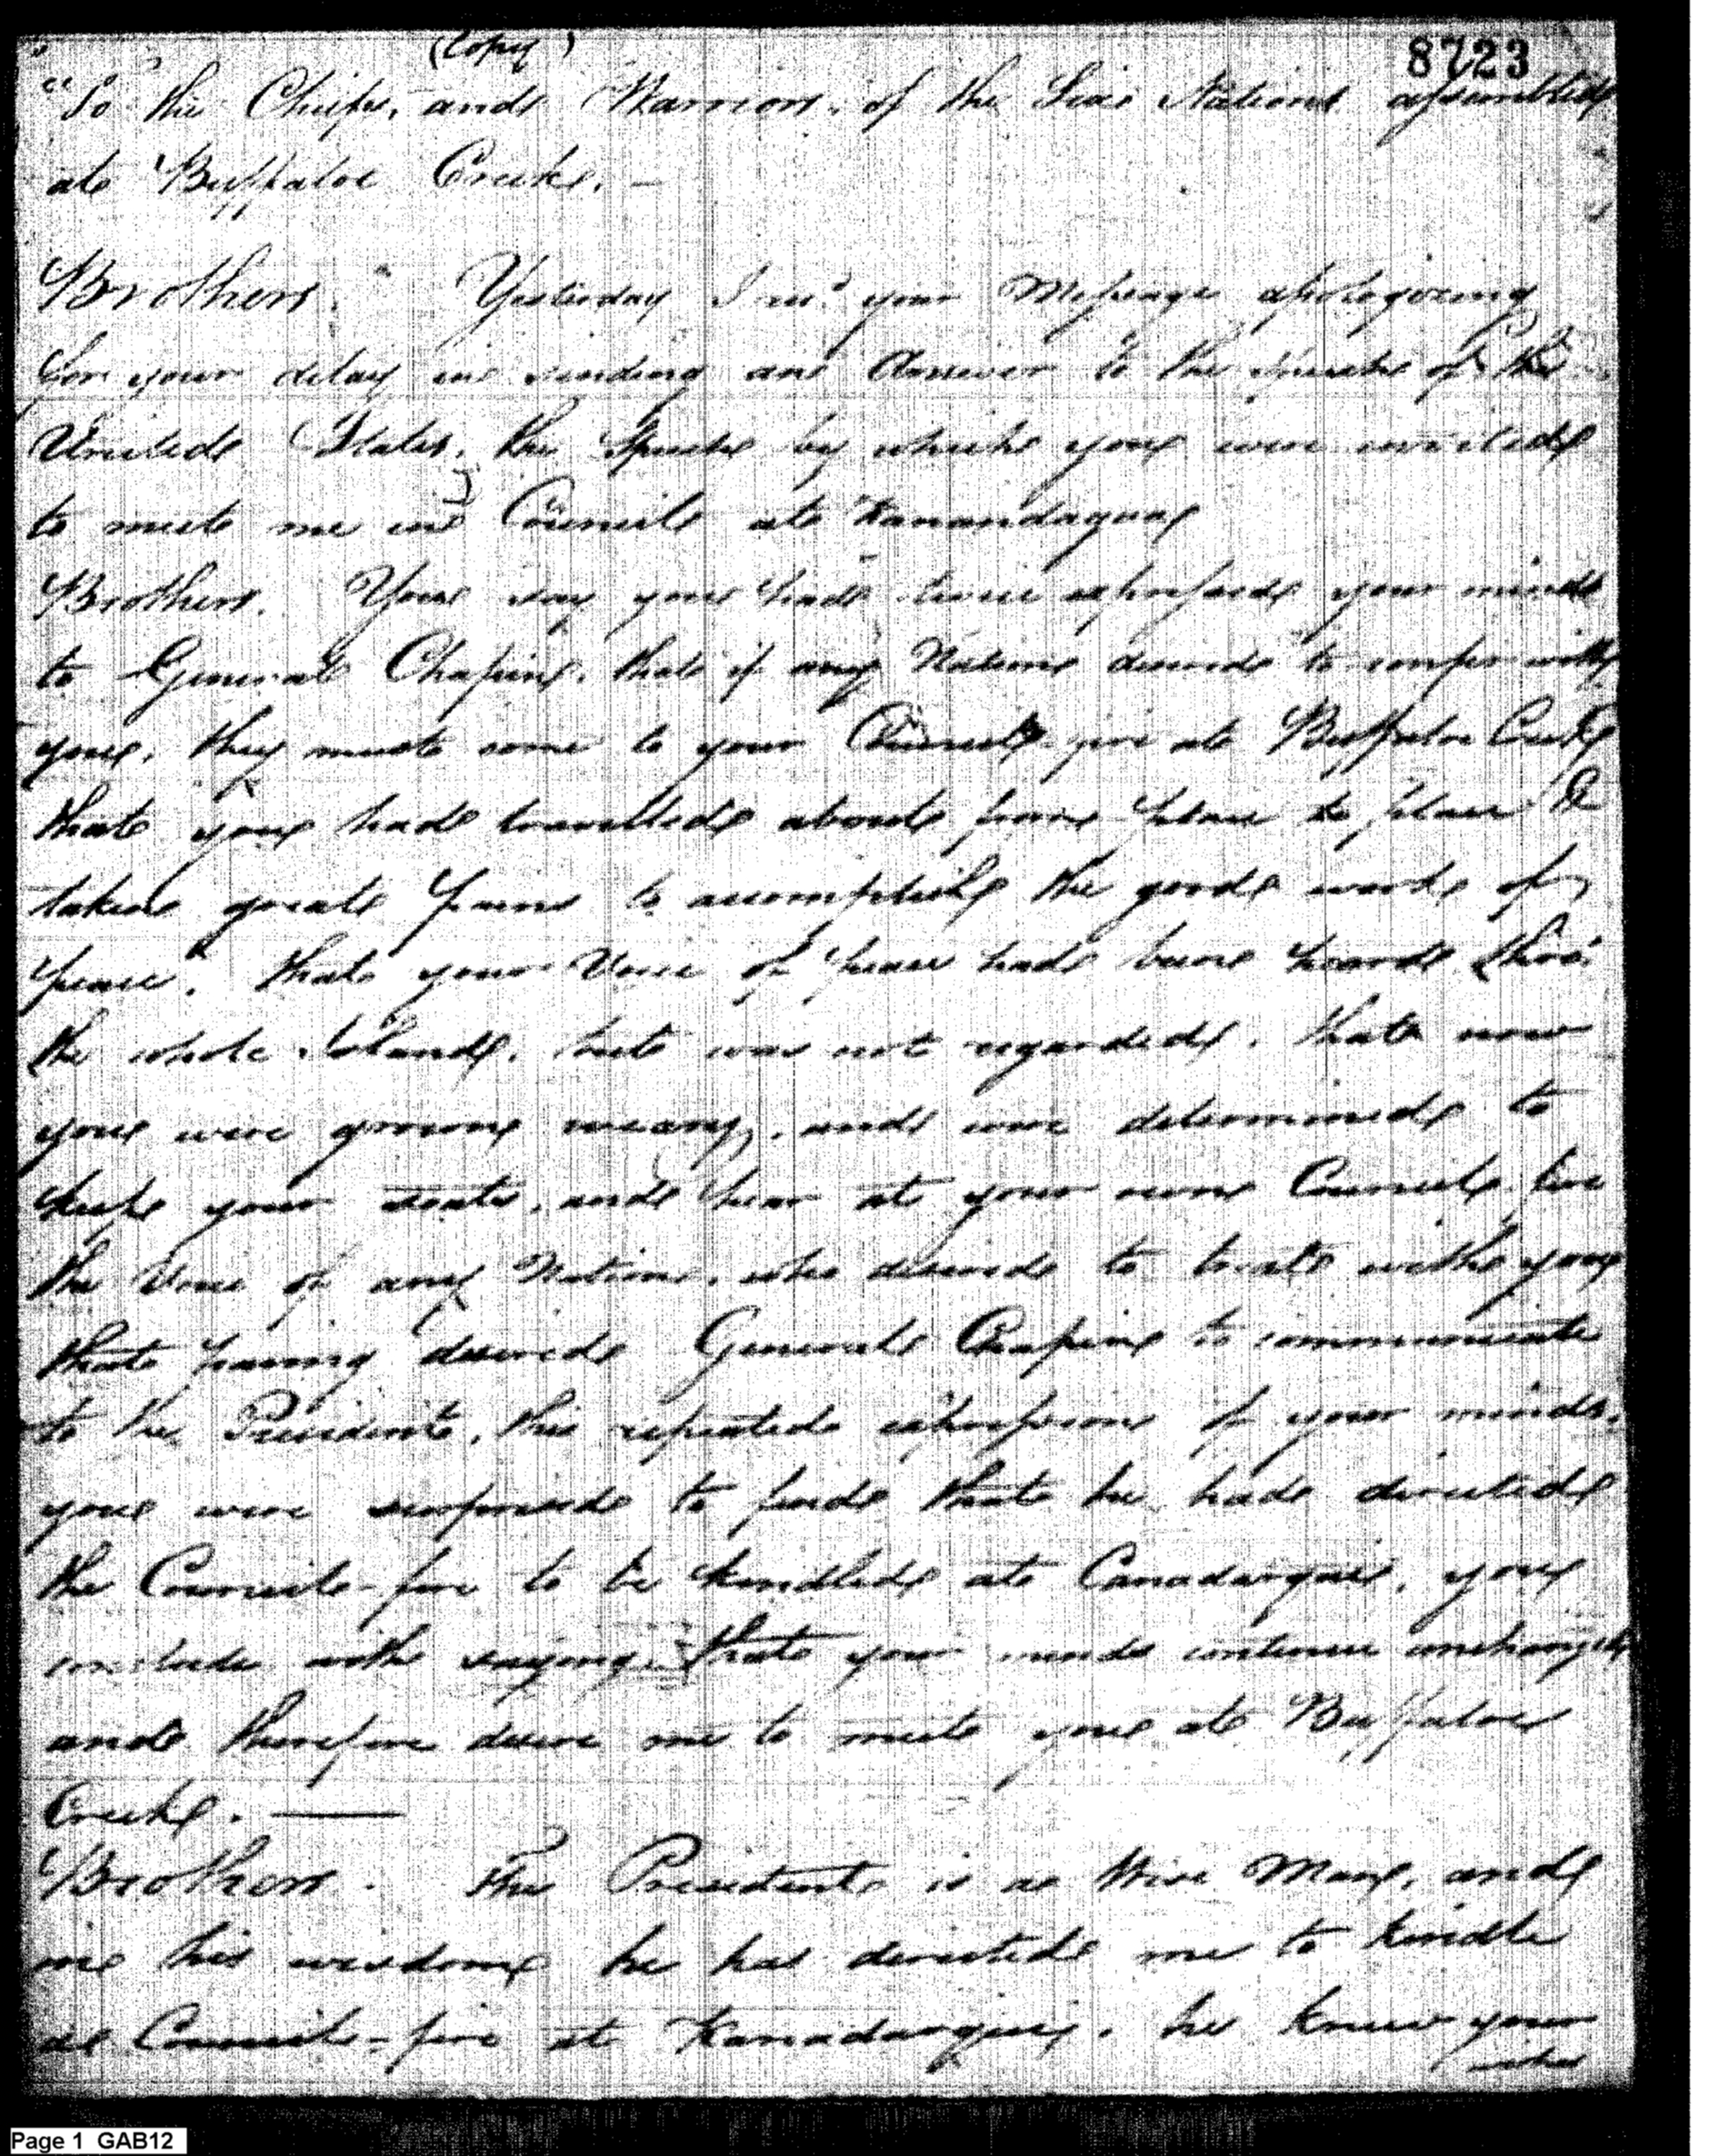 (Copy)
8723
"To the Chiefs, and Warriors, of the Six Nations assembled
at Buffaloe Creek. —
Brothers. Yesterday I recd. your Message apologizing
for your delay in sending an Answer to the Speech of the
United States, the Speech by which you were invited
to meet me in Council at Kanandaqua
Brothers. You say you had twice expressed your minds
to General Chapin, that if any Nation desired to confer with
you, they must come to your Council-fire at Buffaloe Creek
that you had travelled about from place to place &
taken great pains to accomplish the good work of
peace. that your Voice of peace had been heard thro'
the whole Island, but was not regarded. that now
you were grown weary, and were determined to
keep your seats, and hear at your own Council fire
the Voice of any Nation, who desired to treat with you
that having desired General Chapin to communicate
to the President, this repeated expression of your minds,
you were surprised to find that he had directed
the Council-fire to be kindled at Canadarquie, you
conclude with saying that your minds continue unchanged
and therefore desire me to meet you at Buffaloe
Creek. —
Brothers. The President is a Wise Man, and
in his wisdom he has directed me to kindle
a Council-fire at Kanadarquie. he knew your
Page 1 GAB12